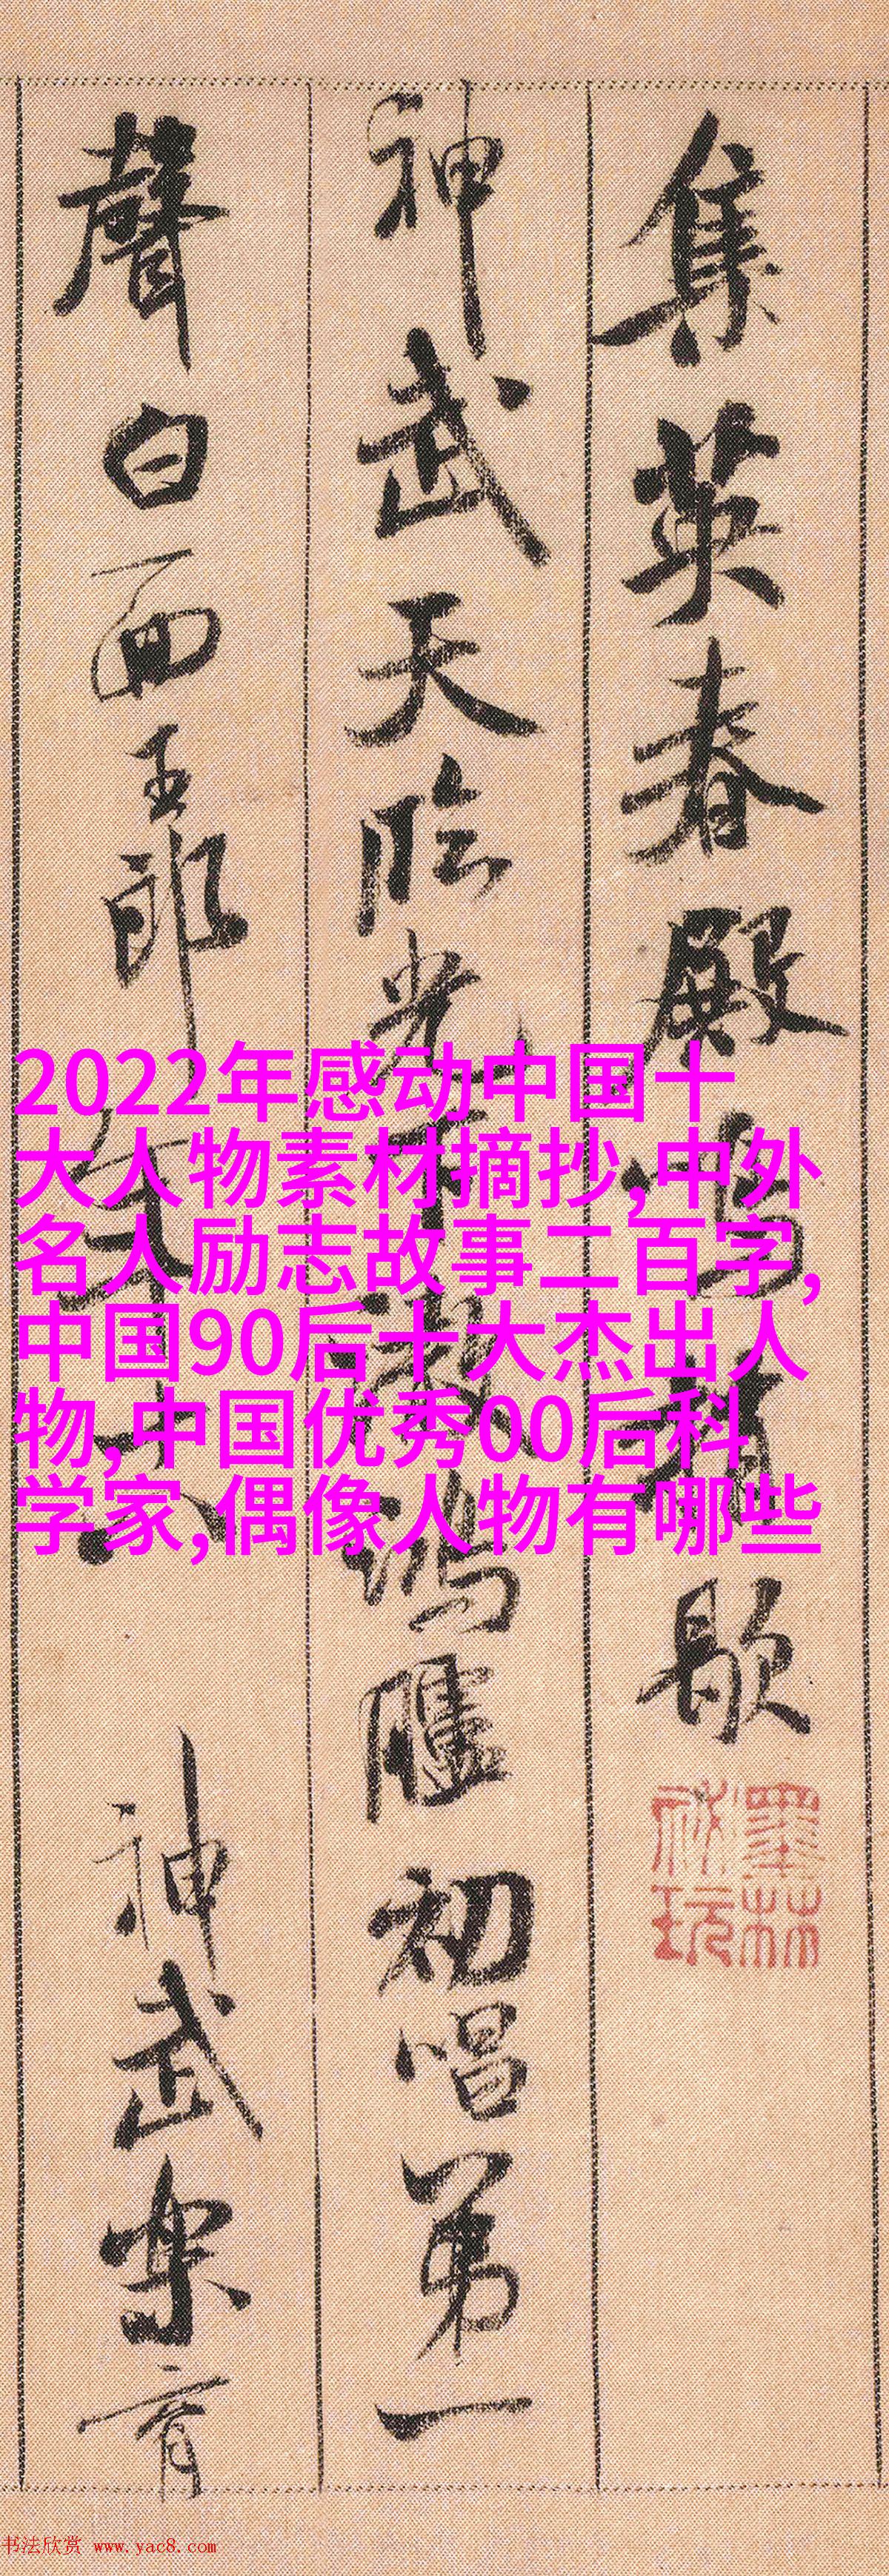 集英春殿鳴梢歇
神武天臨光下澈鴻臚初唱第一
聲白面王郎年十八
神武樂育
墨林
祕玩
2022年感动中国十
大人物素材摘抄,中外
名人励志故事二百字,
中国90后十大杰出人
物,中国优秀00后科
学家,偶像人物有哪些
书法欣赏 www.yac8.com